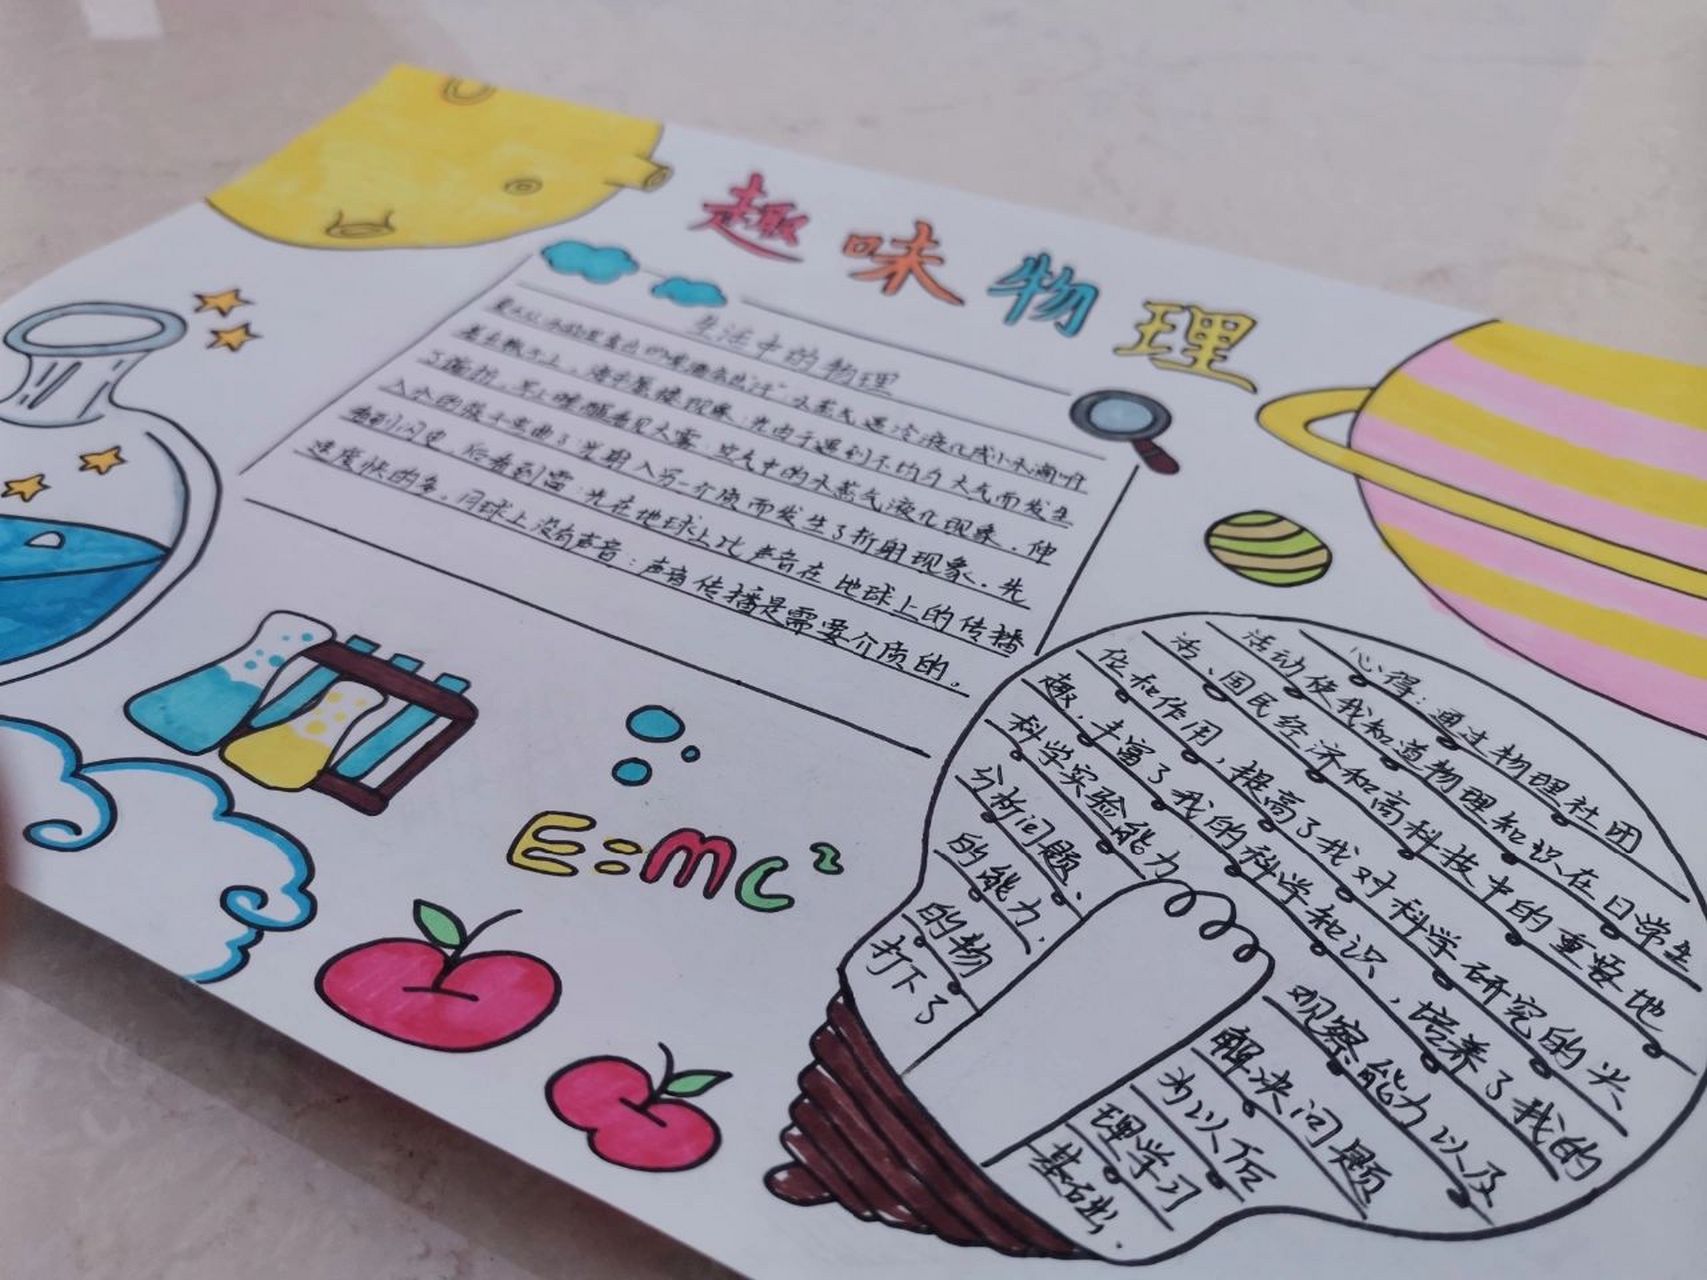 趣味物理
生活中的物理
夏天从冰箱里拿出的啤酒会出汗：水蒸气遇冷液化成小水滴附
着在瓶子上，海市蜃楼现象：光由于遇到不均匀大气而发生
了偏折，早上醒醒看见大雾：空气中的水蒸气液化现象．伸
入水的筷子弯曲了：光射入另一介质而发生了折射现象．先
看到闪电，后看到雷：光在地球上比声音在地球上的传播
速度快的多．月球上没有声音：声音传播是需要介质的。
E=mc²
心得：通过物理社团
活动使我知道物理知识在日常生
活、国民经济和高科技中的重要地
位和作用，提高了我对科学研究的兴
趣，丰富了我的科学知识，培养了我的
科学实验能力
观察能力以及
分析问题、
解决问题
的能力．
为以后
的物
理学习
打下了
基础．